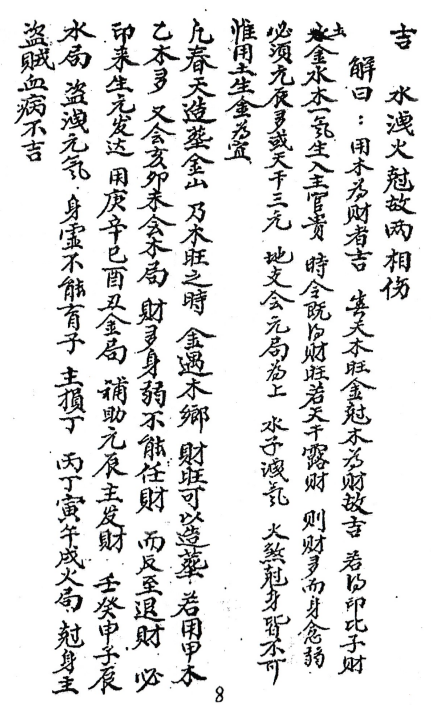 吉　水洩火尅故两相伤
解曰：用木为财者吉　春天木旺金尅木为财故吉　若得印比子财
土金水木一氣生入主官贵　時令既得财旺若天干露财　则财多而身愈弱
必须元辰多或天干三元　地支会元局为上　水子洩氣　火煞尅身皆不可
惟用土生金为宜
凡春天造葬金山　乃木旺之時　金遇木鄉　财旺可以造葬　若用甲木
乙木多　又会亥卯未会木局　财多身弱不能任财　而反至退财　必
印来生元发达　用庚辛巳酉丑金局　補助元辰主发财　壬癸申子辰
水局　盗洩元氣　身虚不能育子　主損丁　丙丁寅午戌火局　尅身主
盗賊血病不吉
8